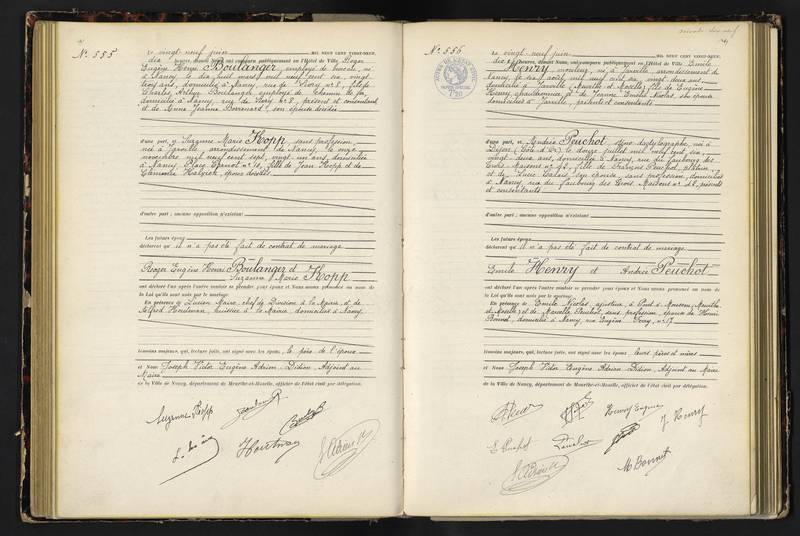 N° 555
Le vingt neuf juin MIL NEUF CENT VINGT-NEUF,
dix heures, devant Nous, ont comparu publiquement en l'Hôtel de Ville Roger
Eugène Henri Boulanger, employé de bureau, né
à Nancy, le dix huit mars mil neuf cent six, vingt
trois ans, domicilié à Nancy, rue de n° 8, fils de
Charles Arthur Boulanger, employé de chemin de fer,
domicilié à Nancy, rue de n° 8, présent et consentant
et de Anne Jeanne son épouse décédée
d'une part, et Suzanne Marie Hopp, sans profession,
née à Jarville, arrondissement de Nancy, le onze
novembre mil neuf cent sept, vingt un ans, domiciliée
à Nancy, Place Carnot n° fille de Jean Hopp et de
Clémence épouse décédés
d'autre part ; aucune opposition n'existant
Les futurs époux
déclarent qu'il n'a pas été fait de contrat de mariage
Roger Eugène Henri Boulanger et
Suzanne Marie Hopp
ont déclaré l'un après l'autre vouloir se prendre pour époux et Nous avons prononcé au nom de
la Loi qu'ils sont unis par le mariage.
En présence de Lucien Marie, chef de Division à la Mairie, et de
Alfred huissier à la Mairie, domiciliés à Nancy
témoins majeurs, qui, lecture faite, ont signé avec les époux, le père de l'époux
et Nous Joseph Victor Eugène Adrien Didion, Adjoint au
Maire
de la Ville de Nancy, département de Meurthe-et-Moselle, officier de l'état civil par délégation.
Suzanne Hopp
N° 556
Le vingt neuf juin MIL NEUF CENT VINGT-NEUF,
dix heures, devant Nous, ont comparu publiquement en l'Hôtel de Ville Emile
Henry, monteur, né à Jarville, arrondissement de
Nancy, le six août mil neuf cent six, vingt deux ans,
domicilié à Jarville (Meurthe et Moselle), fils de Eugène
Henry, et de Jeanne Emilie Nicolas, son épouse
domiciliés à Jarville, présents et consentants
d'une part, et Andrée Peuchot, sténo dactylographe, née à
Dijon (Côte d'Or) le douze juillet mil neuf cent six
vingt-deux ans, domiciliée à Nancy, rue du faubourg des
trois Maisons n° 42, fille de François Peuchot,
et de Lucie son épouse, sans profession, domiciliés
à Nancy, rue du faubourg des trois Maisons n° 42, présents
et consentants
d'autre part ; aucune opposition n'existant
Les futurs époux
déclarent qu'il n'a pas été fait de contrat de mariage
Emile Henry et Andrée Peuchot
ont déclaré l'un après l'autre vouloir se prendre pour époux et Nous avons prononcé au nom de
la Loi qu'ils sont unis par le mariage.
En présence de Emile Nicolas, ajusteur à Pont à Mousson (Meurthe
et Moselle) et de Marcelle Peuchot, sans profession, épouse de Henri
Bonnet, domiciliée à Nancy, rue Eugène n° 17
témoins majeurs, qui, lecture faite, ont signé avec les époux, leurs pères et mères
et Nous Joseph Victor Eugène Adrien Didion, Adjoint au Maire
de la Ville de Nancy, département de Meurthe-et-Moselle, officier de l'état civil par délégation.
Henry Eugène
J. Henry
M Bonnet